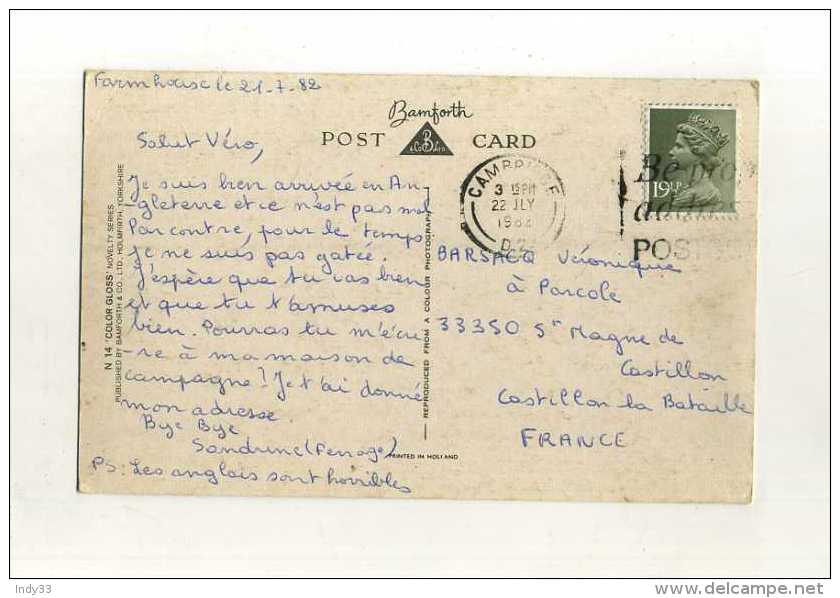 Farm house le 21-7-82
Bamforth
POST CARD
B
& Co Ltd
Salut Véro,
Je suis bien arrivée en An-
gleterre et ce n'est pas mal
Par contre, pour le temps
je ne suis pas gatée.
J'espère que tu vas bien
et que tu t'amuses
bien. Pourras tu m'écri-
-re à ma maison de
campagne? Je t'ai donné
mon adresse
Bye Bye
Sandrine
PS: Les anglais sont horribles
N 14 'COLOR GLOSS' NOVELTY SERIES
PUBLISHED BY BAMFORTH & CO., LTD., HOLMFIRTH, YORKSHIRE
REPRODUCED FROM A COLOUR PHOTOGRAPH
PRINTED IN HOLLAND
CAMBRIDGE
3 15 PM
22 JLY
1982
19½P
Be
POST
BARSACQ Véronique
à Parcole
33350 St Magne de
Castillon
Castillon la Bataille
FRANCE
Indy33
delcampe.net